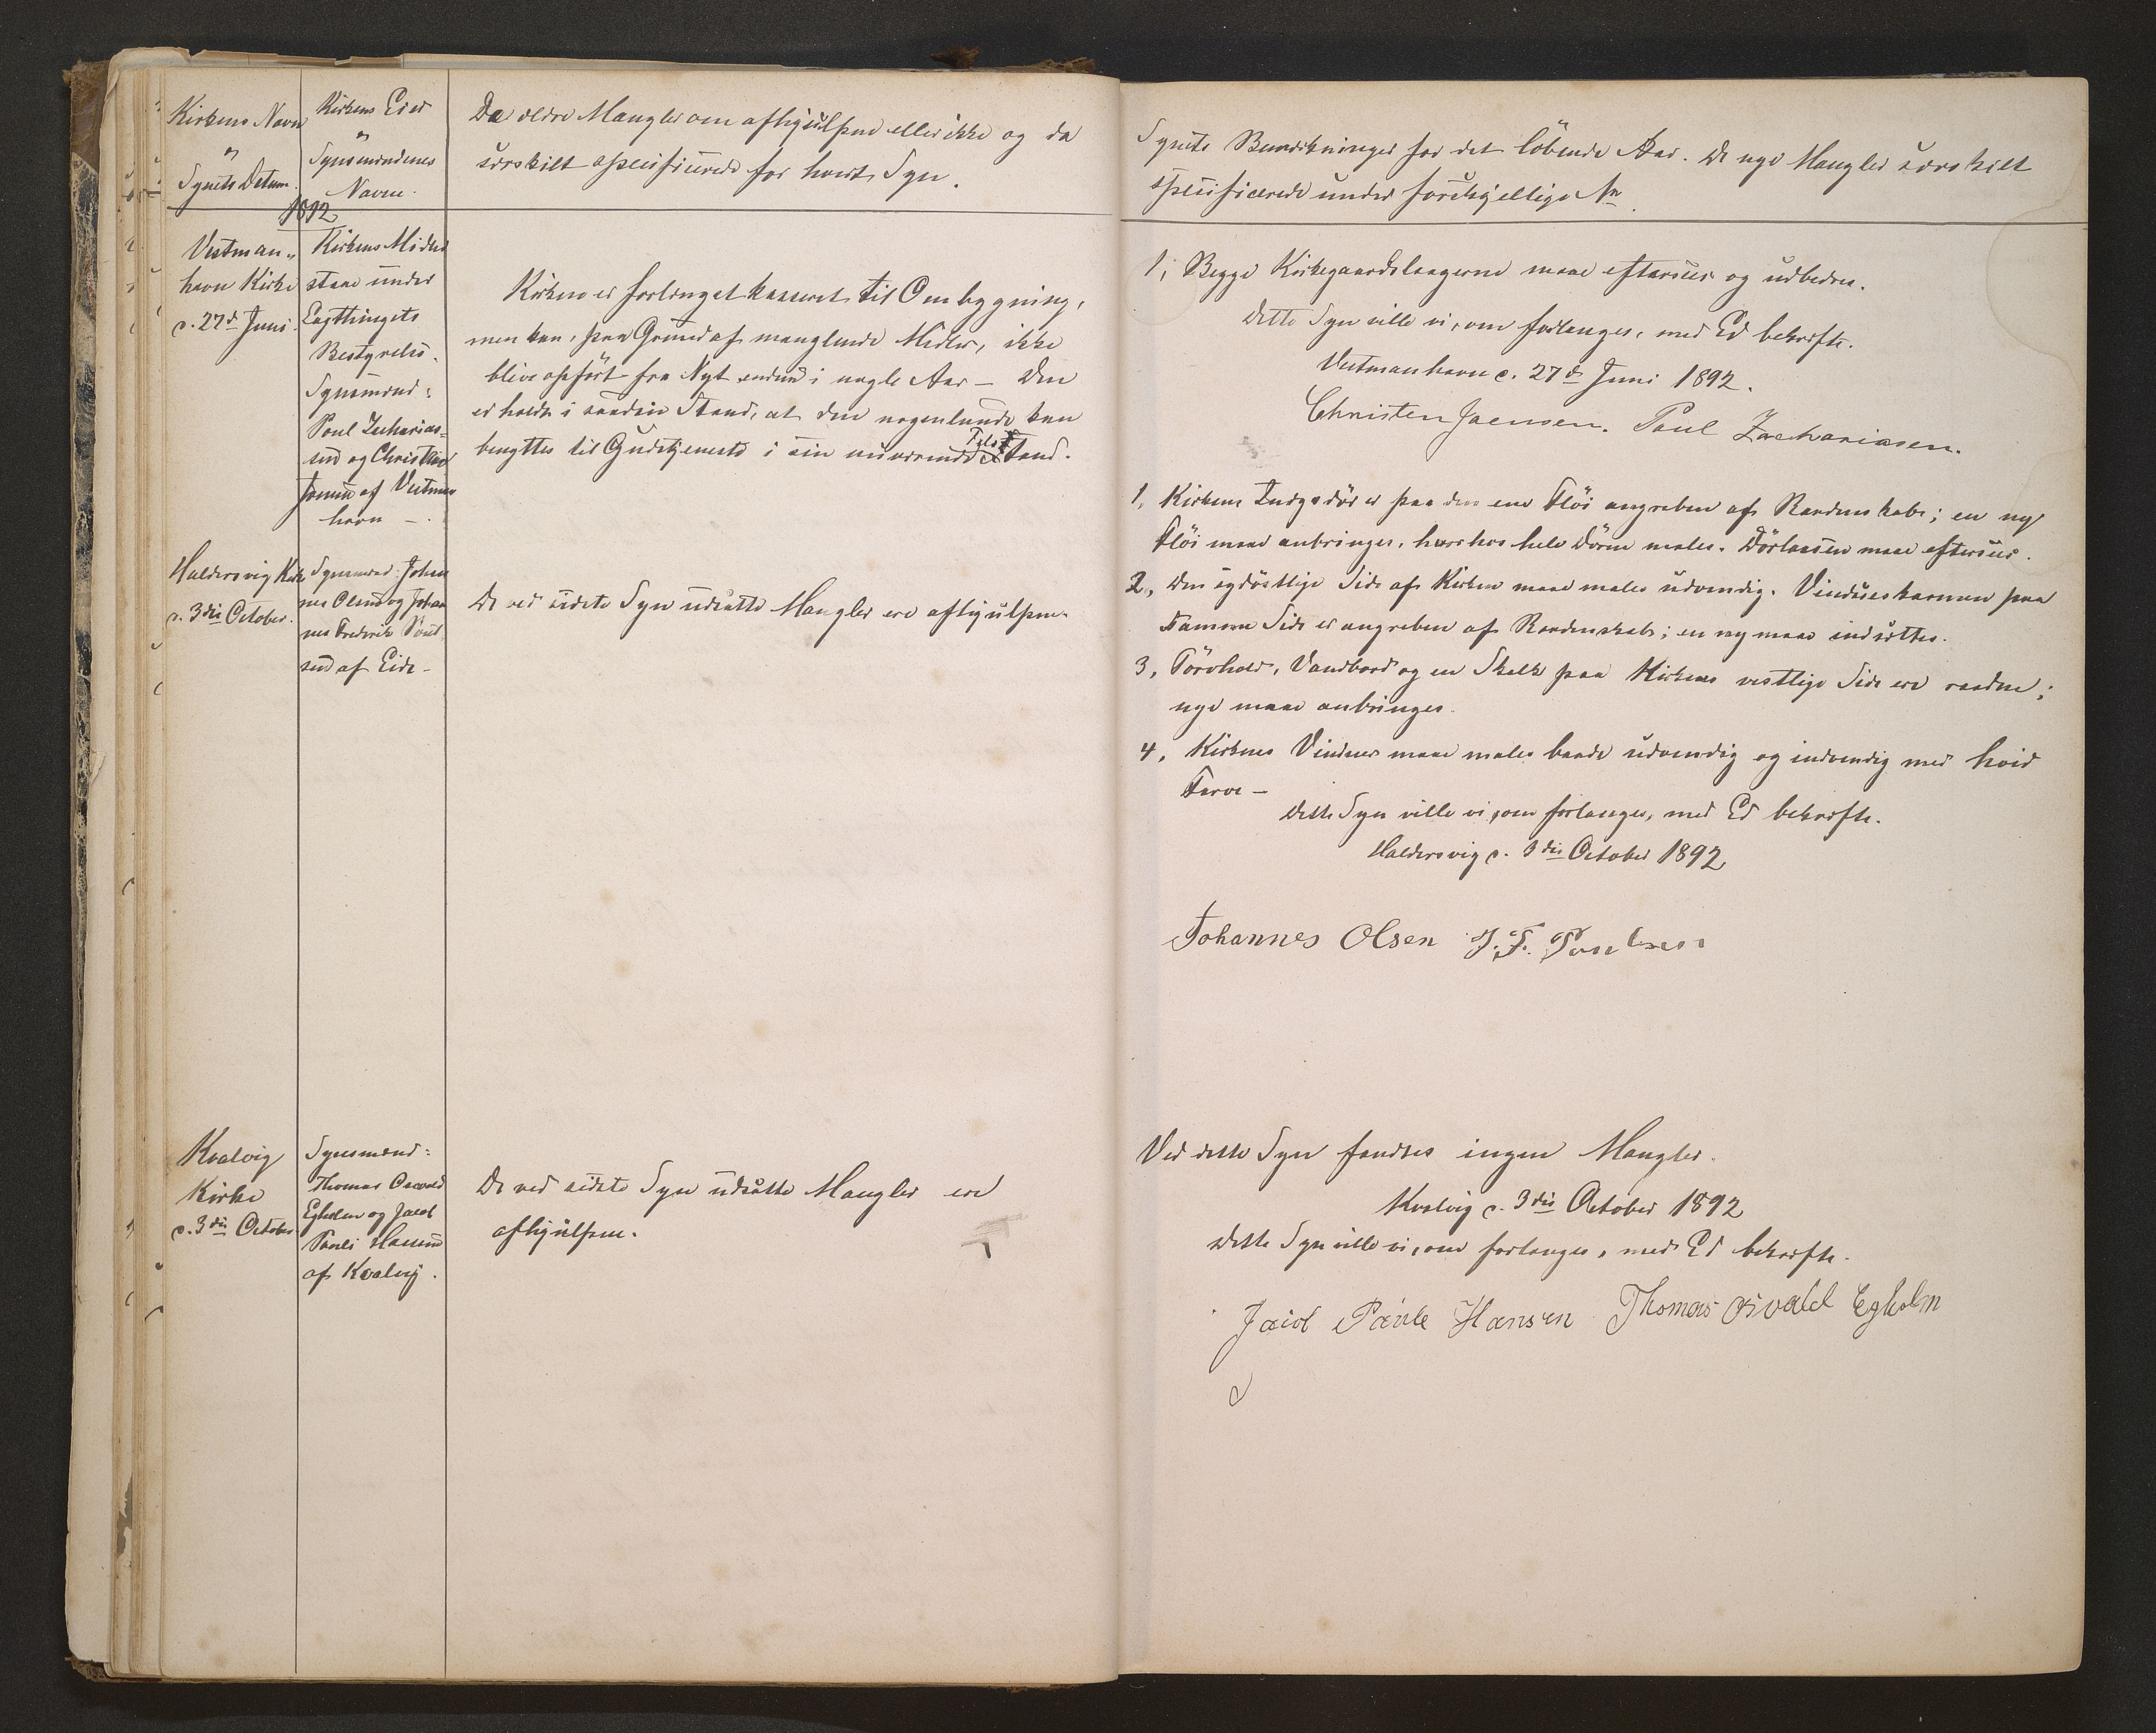 Kirkens Navn
og
Synets Datum.
Kirkens Eier
og
Synsmændenes
Navne.
De ældre Mangler om afhjulpne eller ikke og da
særskilt specificerede for hvert Syn.
1892
Vestman-
havn Kirke
d. 27de Juni
Kirkens Midler
staae under
Lagthingets
Bestyrelse.
Synsmænd:
Poul Zacharias-
sen og Christen
Joensen af Vestman
havn —.
Kirken er forlængst kasseret til Ombygning,
men kan, paa Grund af manglende Midler, ikke
blive opført fra Nyt endnu i nogle Aar — Den
er holdt i saadan Stand, at den nogenlunde kan
benyttes til Gudstjeneste i sin nuværende Tilstand.
Haldersvig Kirke
d. 3die October.
Synsmænd: Johan
nes Olsen og Johan
nes Frederik Poul
sen af Eide —
De ved sidste Syn udsatte Mangler ere afhjulpne.
Kvalvig
Kirke
d. 3die October
Synsmænd:
Thomas Osvald
Egholm og Jacob
Pauli Hansen
af Kvalvig.
De ved sidste Syn udsatte Mangler ere
afhjulpne.
Synets Bemærkninger for det löbende Aar. De nye Mangler særskilt
specificerede under forskjellige Nr.
1, Begge Kirkegaardslaagerne maae eftersees og udbedres.
Dette Syn ville vi, om forlanges, med Ed bekræfte.
Vestmanhavn d. 27de Juni 1892.
Christen Joensen. Poul Zachariasen.
1, Kirkens Indgsdör er paa den ene Flöi angreben af Raadenskab; en ny
Flöi maae anbringes, hvorhos hele Dören males. Dörlaasen maae eftersees.
2, Den sydöstlige Side af Kirken maae males udvendig. Vindueskarmen paa
samme Side er angreben af Raadenskab; en ny maae indsættes.
3, Törvhold, Vandbord og en Skalk paa Kirkens vestlige Side ere raadne;
nye maae anbringes.
4, Kirkens Vinduer maae males baade udvendig og indvendig med hvid
Farve —
Dette Syn ville vi, om forlanges, med Ed bekræfte.
Haldersvig d. 3die October 1892
Johannes Olsen J. F. Poulsen
Ved dette Syn fandtes ingen Mangler.
Kvalvig d. 3die October 1892
Dette Syn ville vi, om forlanges, med Ed bekræfte.
Jacob Paule Hansen Thomas Osvald Egholm